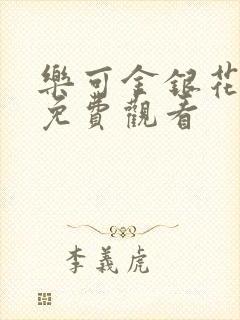 樂可金銀花
免費觀看
李義虎